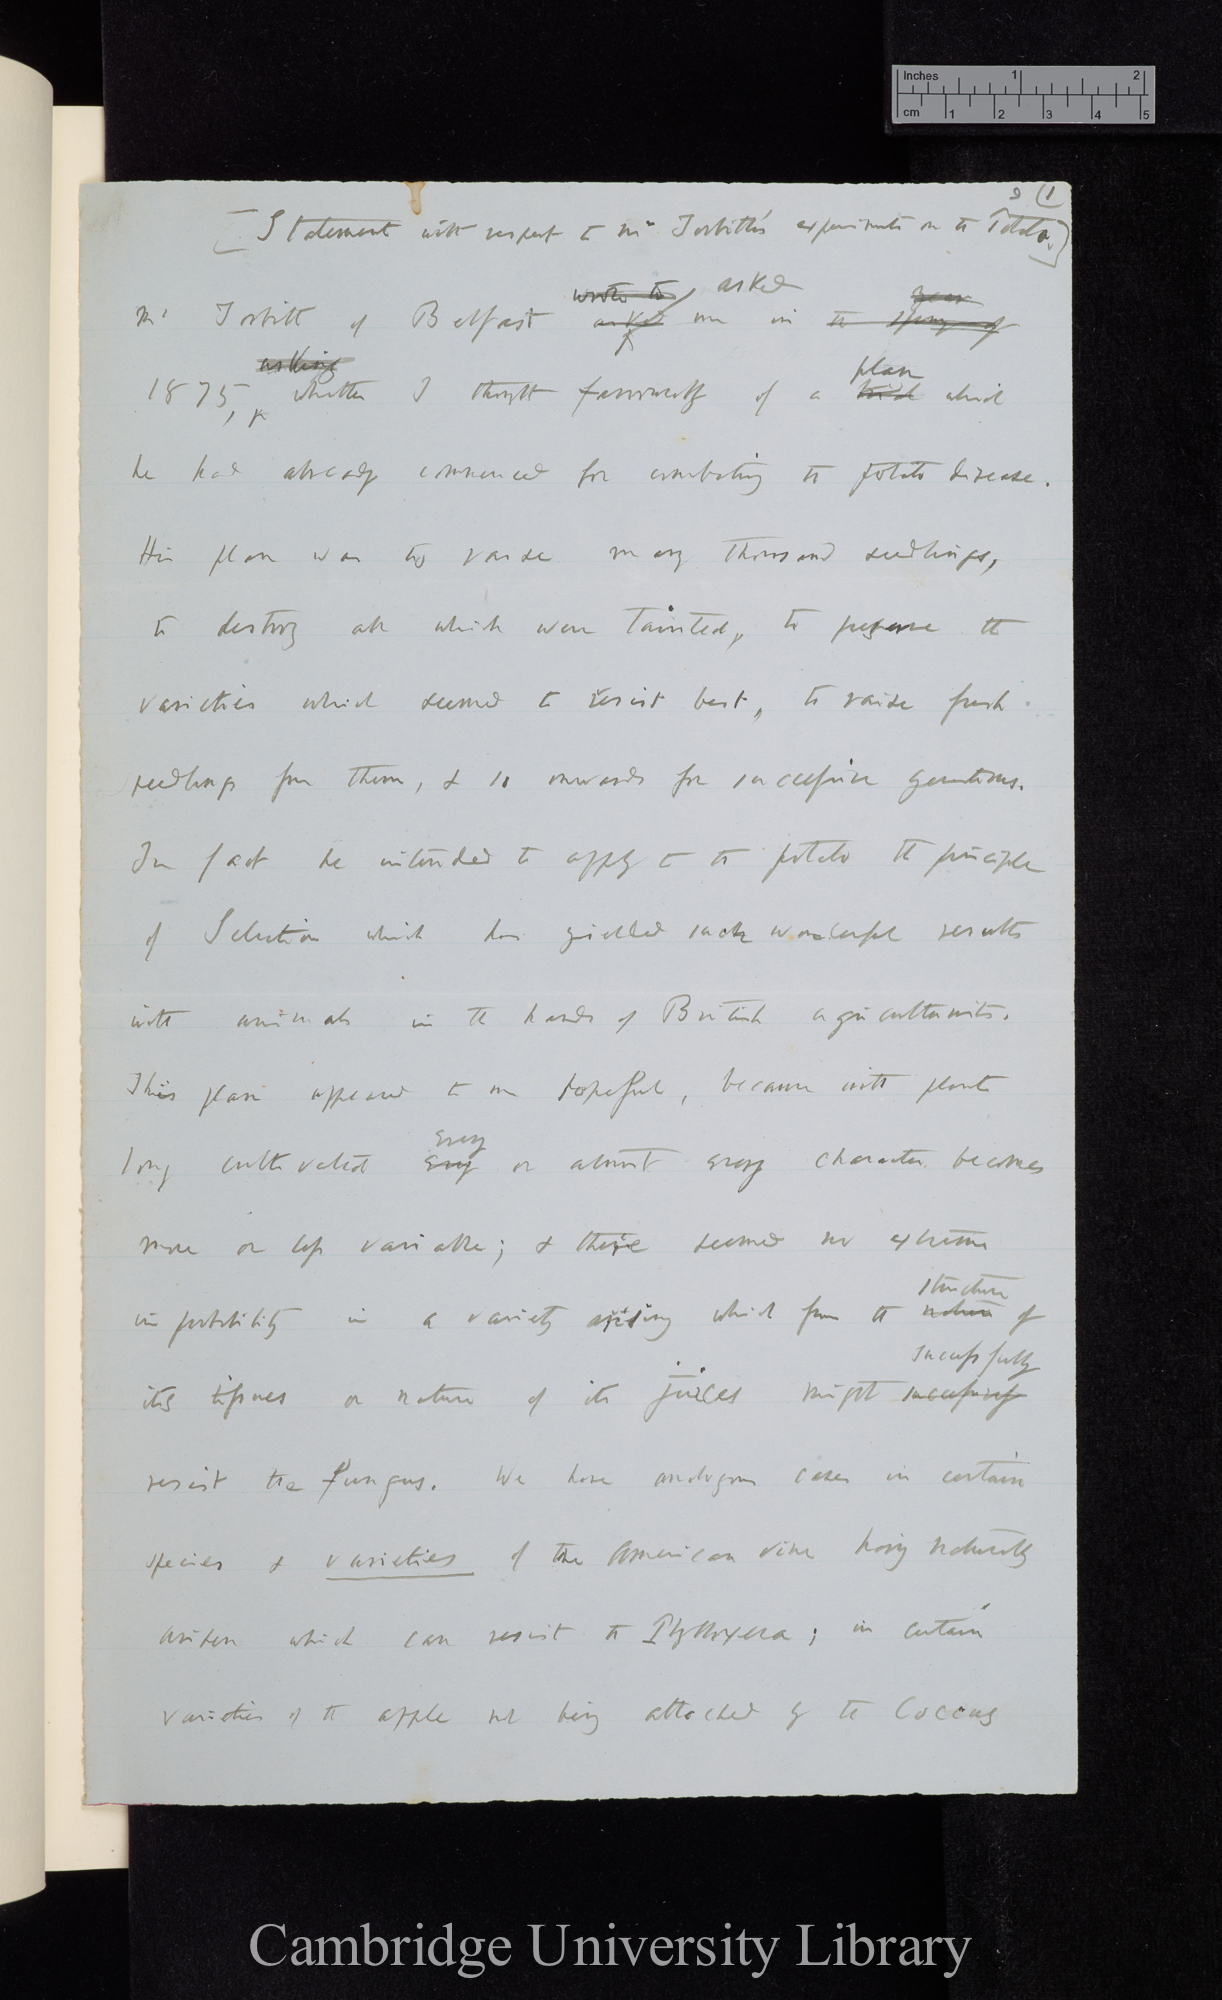 Inches 1 2
cm 1 2 3 4 5
(1
[Statement with respect to Mr Torbitt's experiments on the Potato.]
wrote to asked year
Mr Torbitt of Belfast asked me in the spring of
asking plan
1875, whether I thought favourably of a which
he had already commenced for combating the potato disease.
His plan was to raise many thousand seedlings,
to destroy all which were tainted, to preserve the
varieties which seemed to resist best, to raise fresh
seedlings from them, & so onwards for successive generations.
In fact he intended to apply to the potato the principle
of Selection which has yielded such wonderful results
with animals in the hands of British agriculturists.
This plan appeared to me hopeful, because with plants
every
long cultivated every or almost every character becomes
more or less variable; & there seemed no extreme
structure
improbability in a variety arising which from the nature of
successfully
its tissues or nature of its juices might successively
resist the fungus. We have analogous cases in certain
species & varieties of the American vine having naturally
arisen which can resist the Phylloxera; in certain
varieties of the apple not being attacked by the Coccus
Cambridge University Library